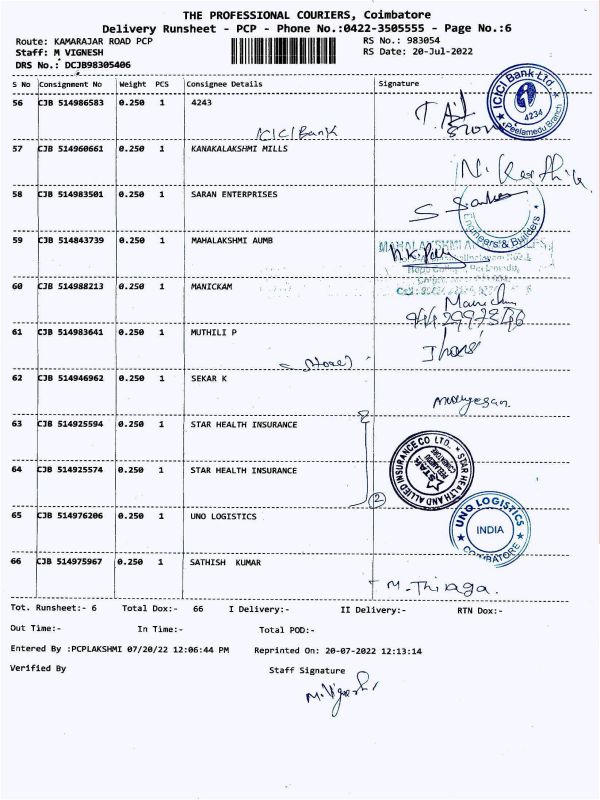 THE PROFESSIONAL COURIERS, Coimbatore
Delivery Runsheet - PCP - Phone No.:0422-3505555 - Page No.:6
Route: KAMARAJAR ROAD PCP RS No.: 983054
Staff: M VIGNESH RS Date: 20-Jul-2022
DRS No.: DCJB98305406
S No Consignment No Weight PCS Consignee Details Signature
56 CJB 514986583 0.250 1 4243
ICICI Bank
ICICI Bank Ltd. 4234 Peelamedu Branch
57 CJB 514960661 0.250 1 KANAKALAKSHMI MILLS
58 CJB 514983501 0.250 1 SARAN ENTERPRISES
Engineers & Builders
59 CJB 514843739 0.250 1 MAHALAKSHMI AUMB
60 CJB 514988213 0.250 1 MANICKAM
61 CJB 514983641 0.250 1 MUTHILI P
(Store)
62 CJB 514946962 0.250 1 SEKAR K
Murugesan.
63 CJB 514925594 0.250 1 STAR HEALTH INSURANCE
64 CJB 514925574 0.250 1 STAR HEALTH INSURANCE
2
STAR HEALTH AND ALLIED INSURANCE CO LTD. STAR
65 CJB 514976206 0.250 1 UNO LOGISTICS
UNO LOGISTICS INDIA COIMBATORE
66 CJB 514975967 0.250 1 SATHISH KUMAR
M. Thiyaga.
Tot. Runsheet:- 6 Total Dox:- 66 I Delivery:- II Delivery:- RTN Dox:-
Out Time:- In Time:- Total POD:-
Entered By :PCPLAKSHMI 07/20/22 12:06:44 PM Reprinted On: 20-07-2022 12:13:14
Verified By Staff Signature
M. Vignesh